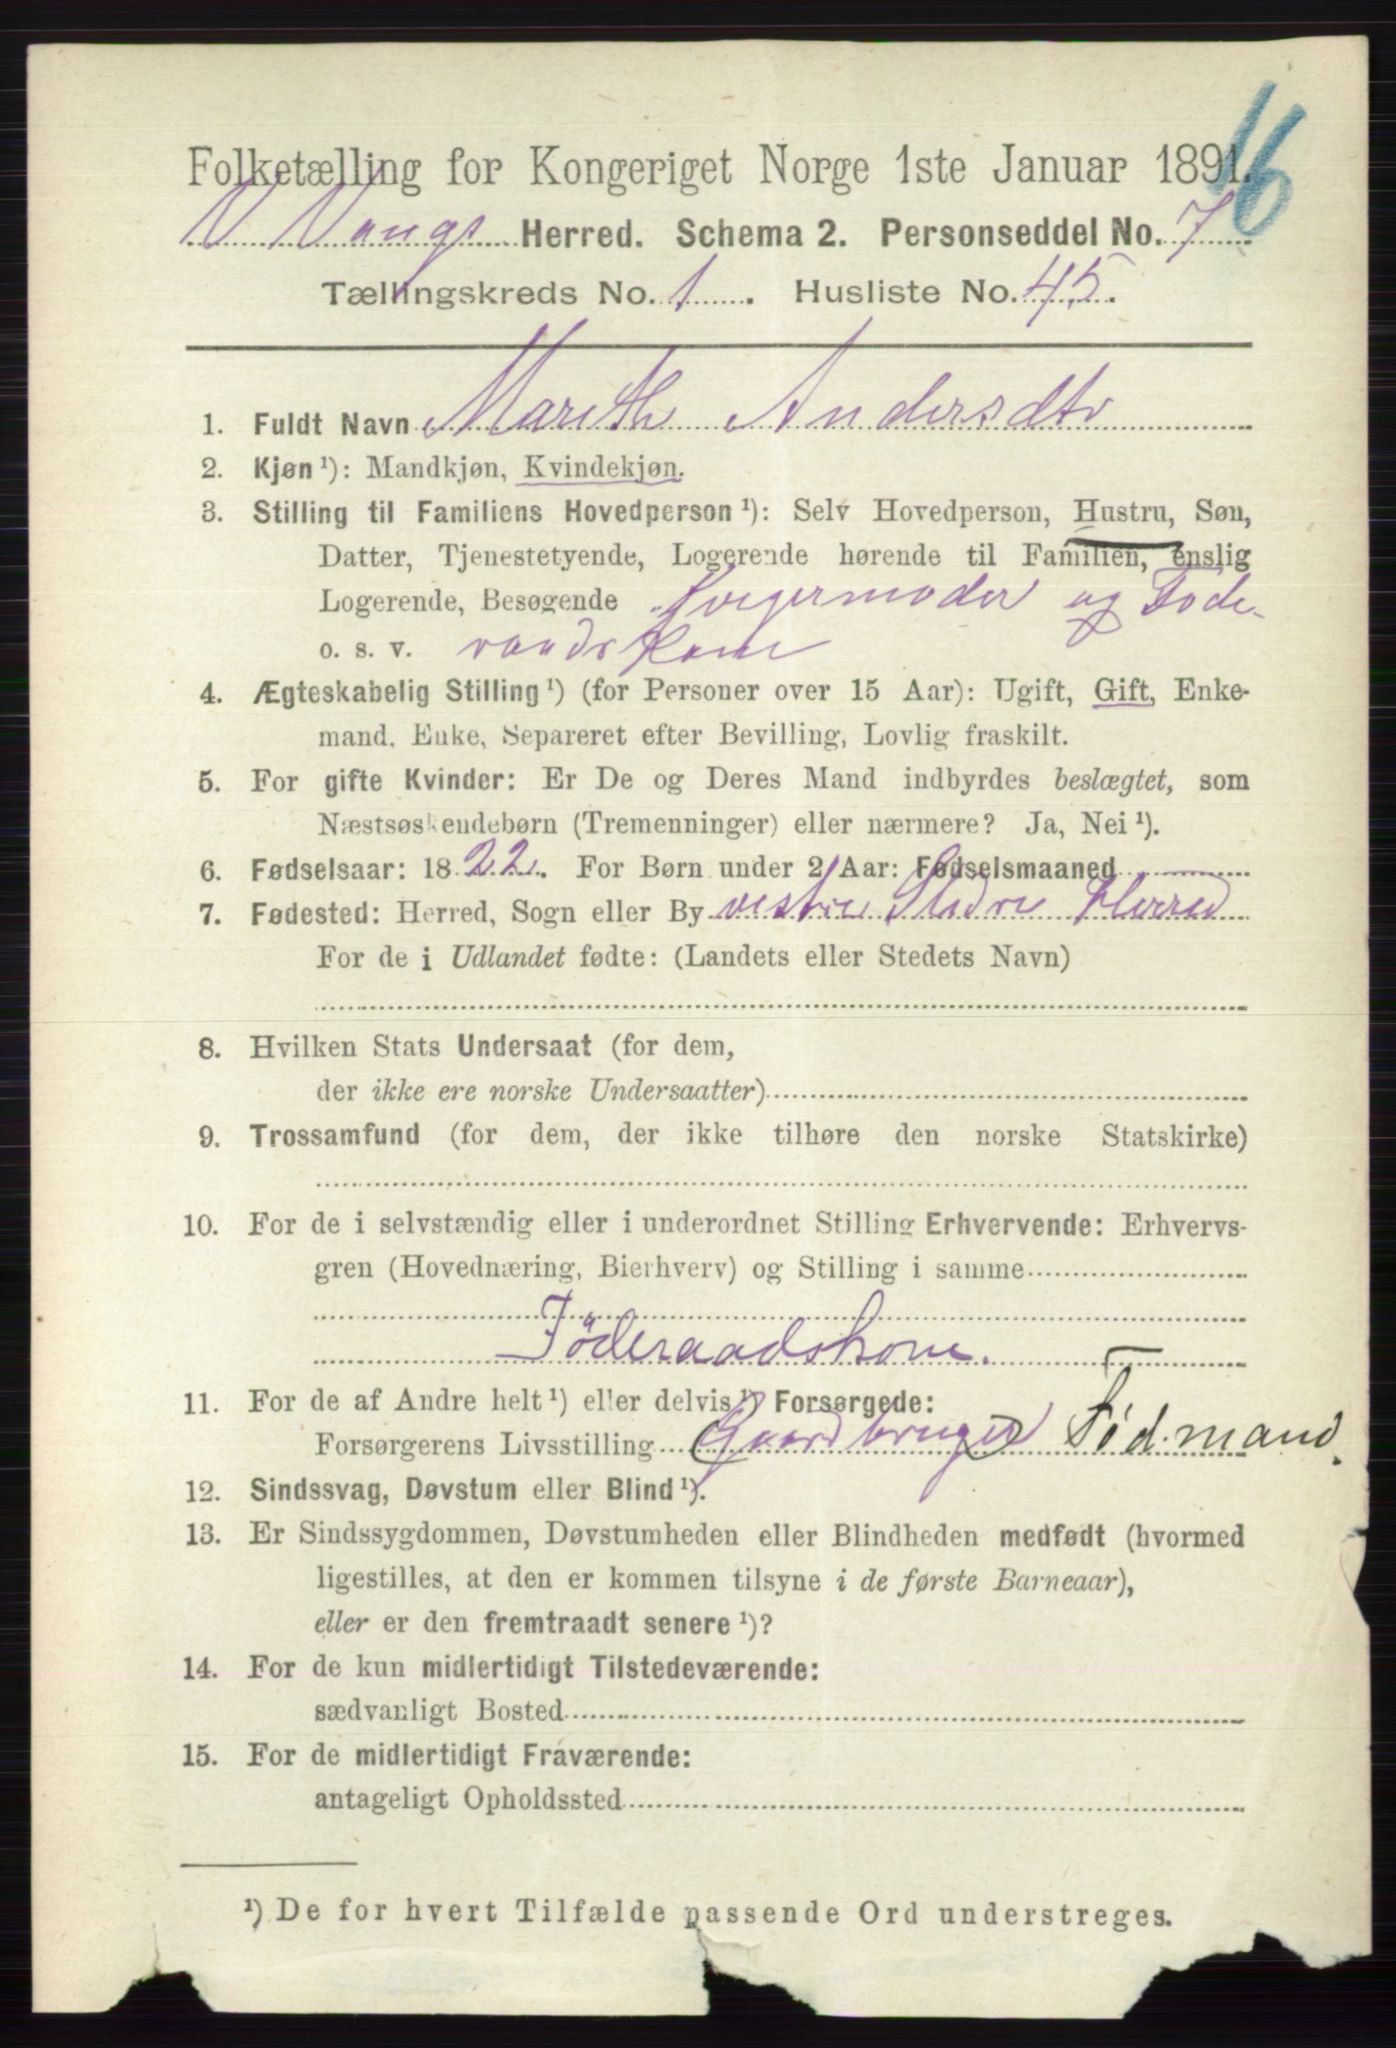 16
Folketælling for Kongeriget Norge 1ste Januar 1891.
V Vangs Herred. Schema 2. Personseddel No. 7
Tællingskreds No. 1. Husliste No. 45.
1. Fuldt Navn Marith Andersdtr
2. Kjøn ¹): Mandkjøn, Kvindekjøn.
3. Stilling til Familiens Hovedperson ¹): Selv Hovedperson, Hustru, Søn,
Datter, Tjenestetyende, Logerende hørende til Familien, enslig
Logerende, Besøgende Svigermoder og Føde-
o. s. v. raadskone
4. Ægteskabelig Stilling ¹) (for Personer over 15 Aar): Ugift, Gift, Enke-
mand, Enke, Separeret efter Bevilling, Lovlig fraskilt.
5. For gifte Kvinder: Er De og Deres Mand indbyrdes beslægtet, som
Næstsøskendebørn (Tremenninger) eller nærmere? Ja, Nei ¹).
6. Fødselsaar: 1822. For Børn under 2 Aar: Fødselsmaaned
7. Fødested: Herred, Sogn eller By vestre Slidre Herred
For de i Udlandet fødte: (Landets eller Stedets Navn)
8. Hvilken Stats Undersaat (for dem,
der ikke ere norske Undersaatter)
9. Trossamfund (for dem, der ikke tilhøre den norske Statskirke)
10. For de i selvstændig eller i underordnet Stilling Erhvervende: Erhvervs-
gren (Hovednæring, Bierhverv) og Stilling i samme
Føderaadskone.
11. For de af Andre helt ¹) eller delvis ¹) Forsørgede:
Forsørgerens Livsstilling (Gaardbruger) Fød.mand.
12. Sindssvag, Døvstum eller Blind ¹).
13. Er Sindssygdommen, Døvstumheden eller Blindheden medfødt (hvormed
ligestilles, at den er kommen tilsyne i de første Barneaar),
eller er den fremtraadt senere ¹)?
14. For de kun midlertidigt Tilstedeværende:
sædvanligt Bosted
15. For de midlertidigt Fraværende:
antageligt Opholdssted
¹) De for hvert Tilfælde passende Ord understreges.